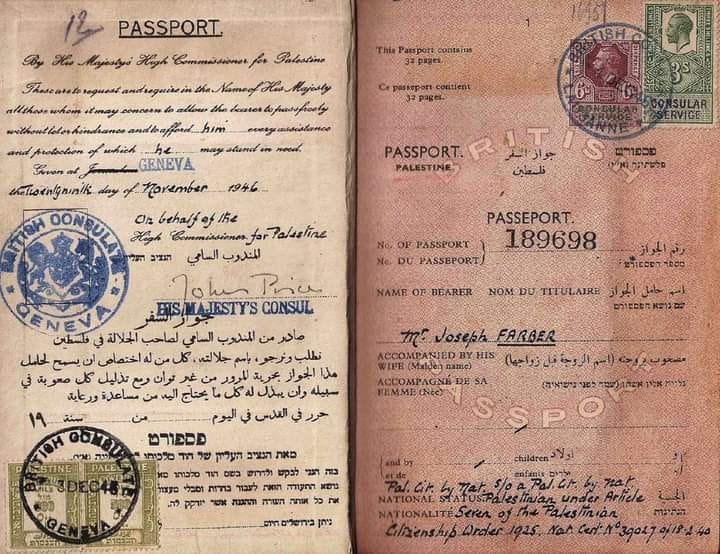 12
PASSPORT.
By His Majesty's High Commissioner for Palestine
These are to request and require in the Name of His Majesty
all those whom it may concern to allow the bearer to pass freely
without let or hindrance and to afford him every assistance
and protection of which he may stand in need.
Given at Jerusalem GENEVA
the Twentyninth day of November 1946
On behalf of the
High Commissioner for Palestine
المندوب السامي
John Price
HIS MAJESTY'S CONSUL
BRITISH CONSULATE
GENEVA
جواز السفر
صادر من المندوب السامي لصاحب الجلالة في فلسطين
نطلب ونرجو، باسم جلالته، كل من له اختصاص ان يسمح لحامل
هذا الجواز بحرية المرور من غير توان ومع تذليل كل صعوبة في
سبيله وان يبذل له كل ما يحتاج اليه من مساعدة ورعاية
حرر في القدس في اليوم من سنة ١٩
פספורט
מאת הנציב העליון של הוד מלכותו
BRITISH CONSULATE
PALESTINE PALESTINE
3 DEC 46
GENEVA
ניתן בירושלים היום
1
This Passport contains
32 pages.
Ce passeport contient
32 pages.
BRITISH
LAUSANNE
6D
CONSULAR
SERVICE
3S
CONSULAR
SERVICE
BRITISH
PASSPORT. جواز السفر פספורט
PALESTINE. فلسطين פלשתינה (א"י)
PASSEPORT.
No. OF PASSPORT رقم الجواز
189698
No. DU PASSEPORT מספר הפספורט
NAME OF BEARER NOM DU TITULAIRE اسم حامل الجواز
שם נושא הפספורט
Mr Joseph FARBER
ACCOMPANIED BY HIS
WIFE (Maiden name) مصحوب بزوجته (اسم الزوجة قبل زواجها)
ACCOMPAGNÉ DE SA
FEMME (Née)
PASSPORT
and by children اولاد و
et de enfants ילדים
Pal. Cit. by Nat. s/o a Pal. Cit. by nat.
NATIONAL STATUS Palestinian under Article الجنسية
NATIONALITÉ Seven of the Palestinian הנתינות
Citizenship Order 1925. Nat. Cert. No 39027 of 18-2-40